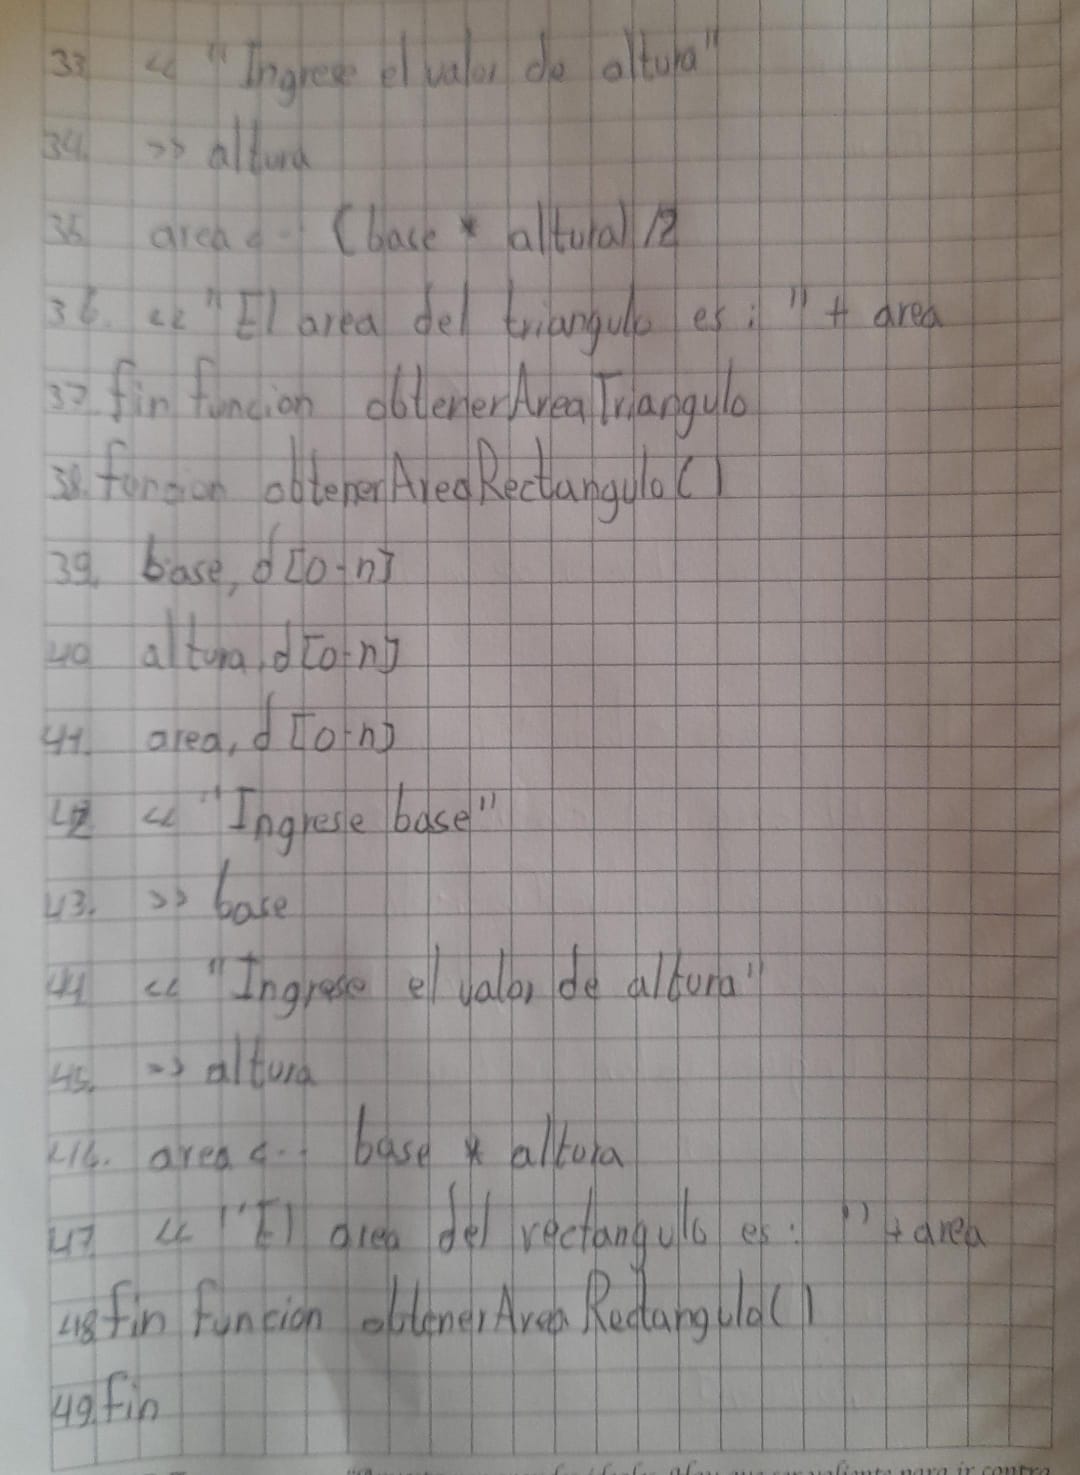 33 << "Ingrese el valor de altura"
34. >> altura
35 area <-- (base * altura) /2
36. << "El area del triangulo es: " + area
37. fin funcion obtenerAreaTriangulo
38. funcion obtenerAreaRectangulo()
39. base, d [0-n]
40 altura, d [0-n]
41. area, d [0-n]
42 << "Ingrese base"
43. >> base
44 << "Ingrese el valor de altura"
45. >> altura
46. area <-- base * altura
47 << "El area del rectangulo es: " + area
48 fin funcion obtenerAreaRectangulo()
49. fin
para ir contra